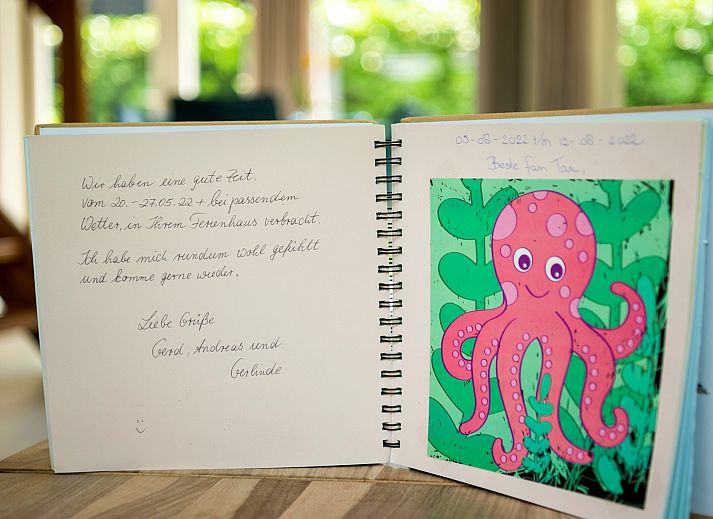 Wir haben eine gute Zeit,
vom 20. - 27.05.22 + bei passendem
Wetter, in Ihrem Ferienhaus verbracht.
Ich habe mich rundum wohl gefühlt
und komme gerne wieder.
Liebe Grüße
Gerd, Andreas und
Gerlinde
:)
05-08-2022 t/m 12-08-2022
Beste fam Tar,